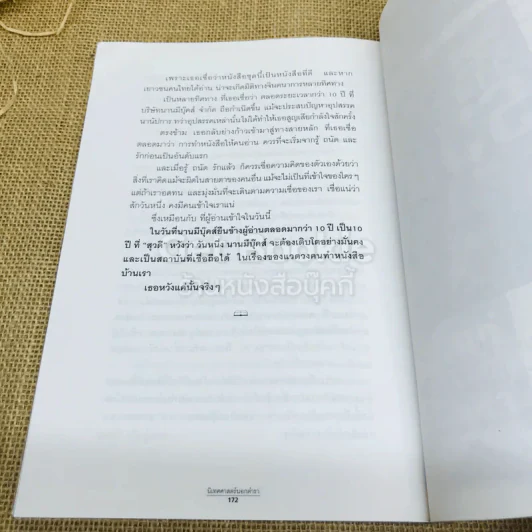 เพราะเธอเชื่อว่าหนังสือชุดนี้เป็นหนังสือที่ดี และหาก
เยาวชนคนไทยได้อ่าน น่าจะเกิดมิติทางจินตนาการหลายทิศทาง
เป็นหลายทิศทาง ที่เธอเชื่อว่า ตลอดระยะเวลากว่า 10 ปี ที่
บริษัทนานมีบุ๊คส์ จำกัด ถือกำเนิดขึ้น แม้จะประสบปัญหาอุปสรรค
นานัปการ ทว่าอุปสรรคเหล่านั้นไม่ได้ทำให้เธอสูญเสียกำลังใจสักครั้ง
ตรงข้าม เธอกลับย่างก้าวเข้ามาสู่ทางสายหลัก ที่เธอเชื่อ
ตลอดมาว่า การทำหนังสือให้คนอ่าน ควรที่จะเริ่มจากรู้ ถนัด และ
รักก่อนเป็นอันดับแรก
และเมื่อรู้ ถนัด รักแล้ว ก็ควรเชื่อความคิดของตัวเองด้วยว่า
สิ่งที่เราคิดแม้จะผิดในสายตาของคนอื่น แม้จะไม่เป็นที่เข้าใจของใครๆ
แต่ถ้าเราอดทน และมุ่งมั่นที่จะเดินตามความเชื่อของเรา เชื่อแน่ว่า
สักวันหนึ่ง คงมีคนเข้าใจเราแน่
ซึ่งเหมือนกับ ที่ผู้อ่านเข้าใจในวันนี้
ในวันที่นานมีบุ๊คส์ยืนข้างผู้อ่านตลอดมากว่า 10 ปี เป็น10
ปี ที่ "สุวดี" หวังว่า วันหนึ่ง นานมีบุ๊คส์ จะต้องเติบโตอย่างมั่นคง
และเป็นสถาบันที่เชื่อถือได้ ในเรื่องของแวดวงคนทำหนังสือ
บ้านเรา
เธอหวังแค่นั้นจริงๆ
ร้านหนังสือบุ๊คกี้
นิเทศศาสตร์นอกตำรา
172